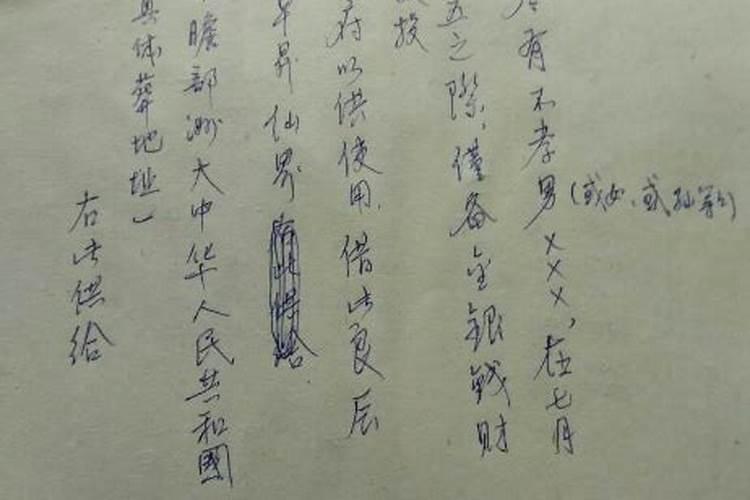 有不孝男(或女、或孙等)×××,在七月
五之际,僅备金銀钱财
投
府以供使用,借此良辰
昇仙界
瞻部洲大中华人民共和國
具体葬地址)
右此供给